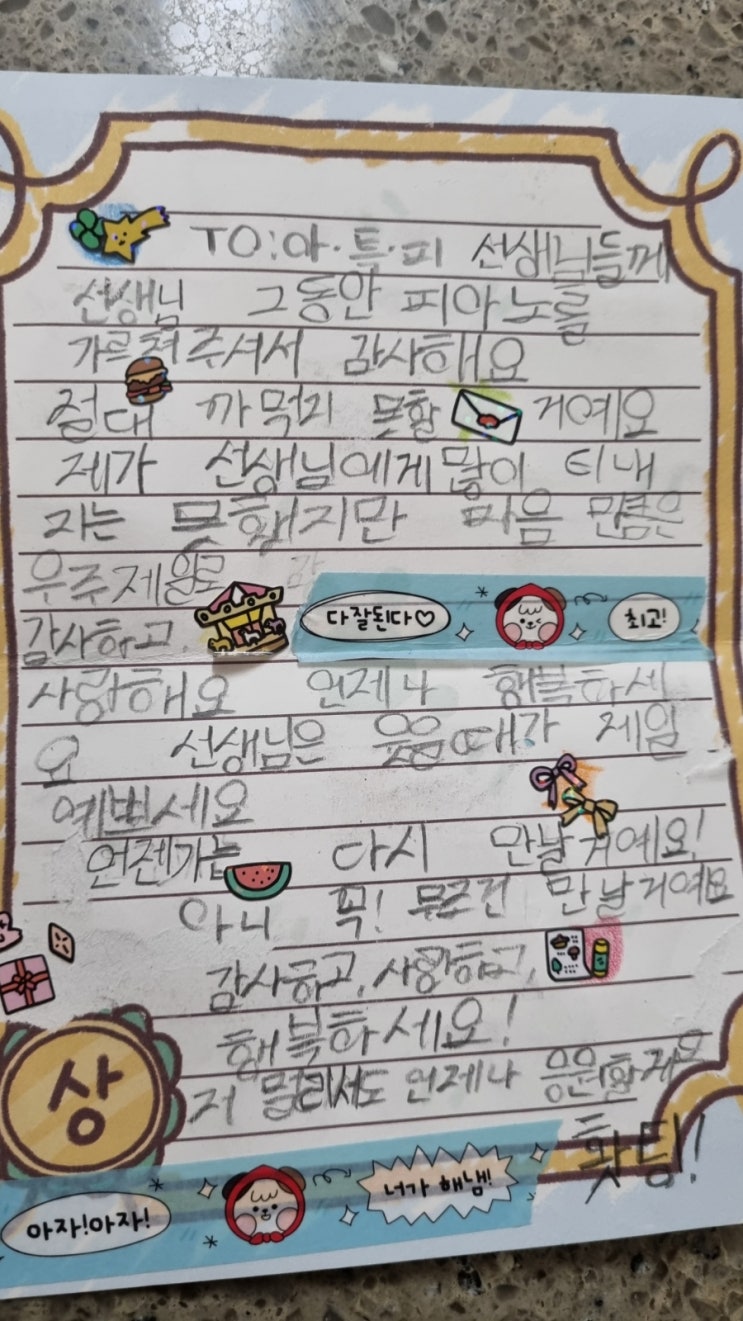 TO:아·특·피 선생님들께
선생님 그동안 피아노를
가르쳐 주셔서 감사해요
절대 까먹지 못할 거예요
제가 선생님에게 많이 티내
지는 못했지만 마음 만큼은
우주제일로
감사하고,
다잘된다♡
최고!
사랑해요 언제나 행복하세
요 선생님은 웃을때가 제일
예쁘세요
언젠가는 다시 만날거예요!
아니 꼭! 무조건 만날거예요
감사하고, 사랑하고,
행복하세요!
저 멀리서도 언제나 응원할게요
홧팅!
상
아자!아자!
너가 해냄!